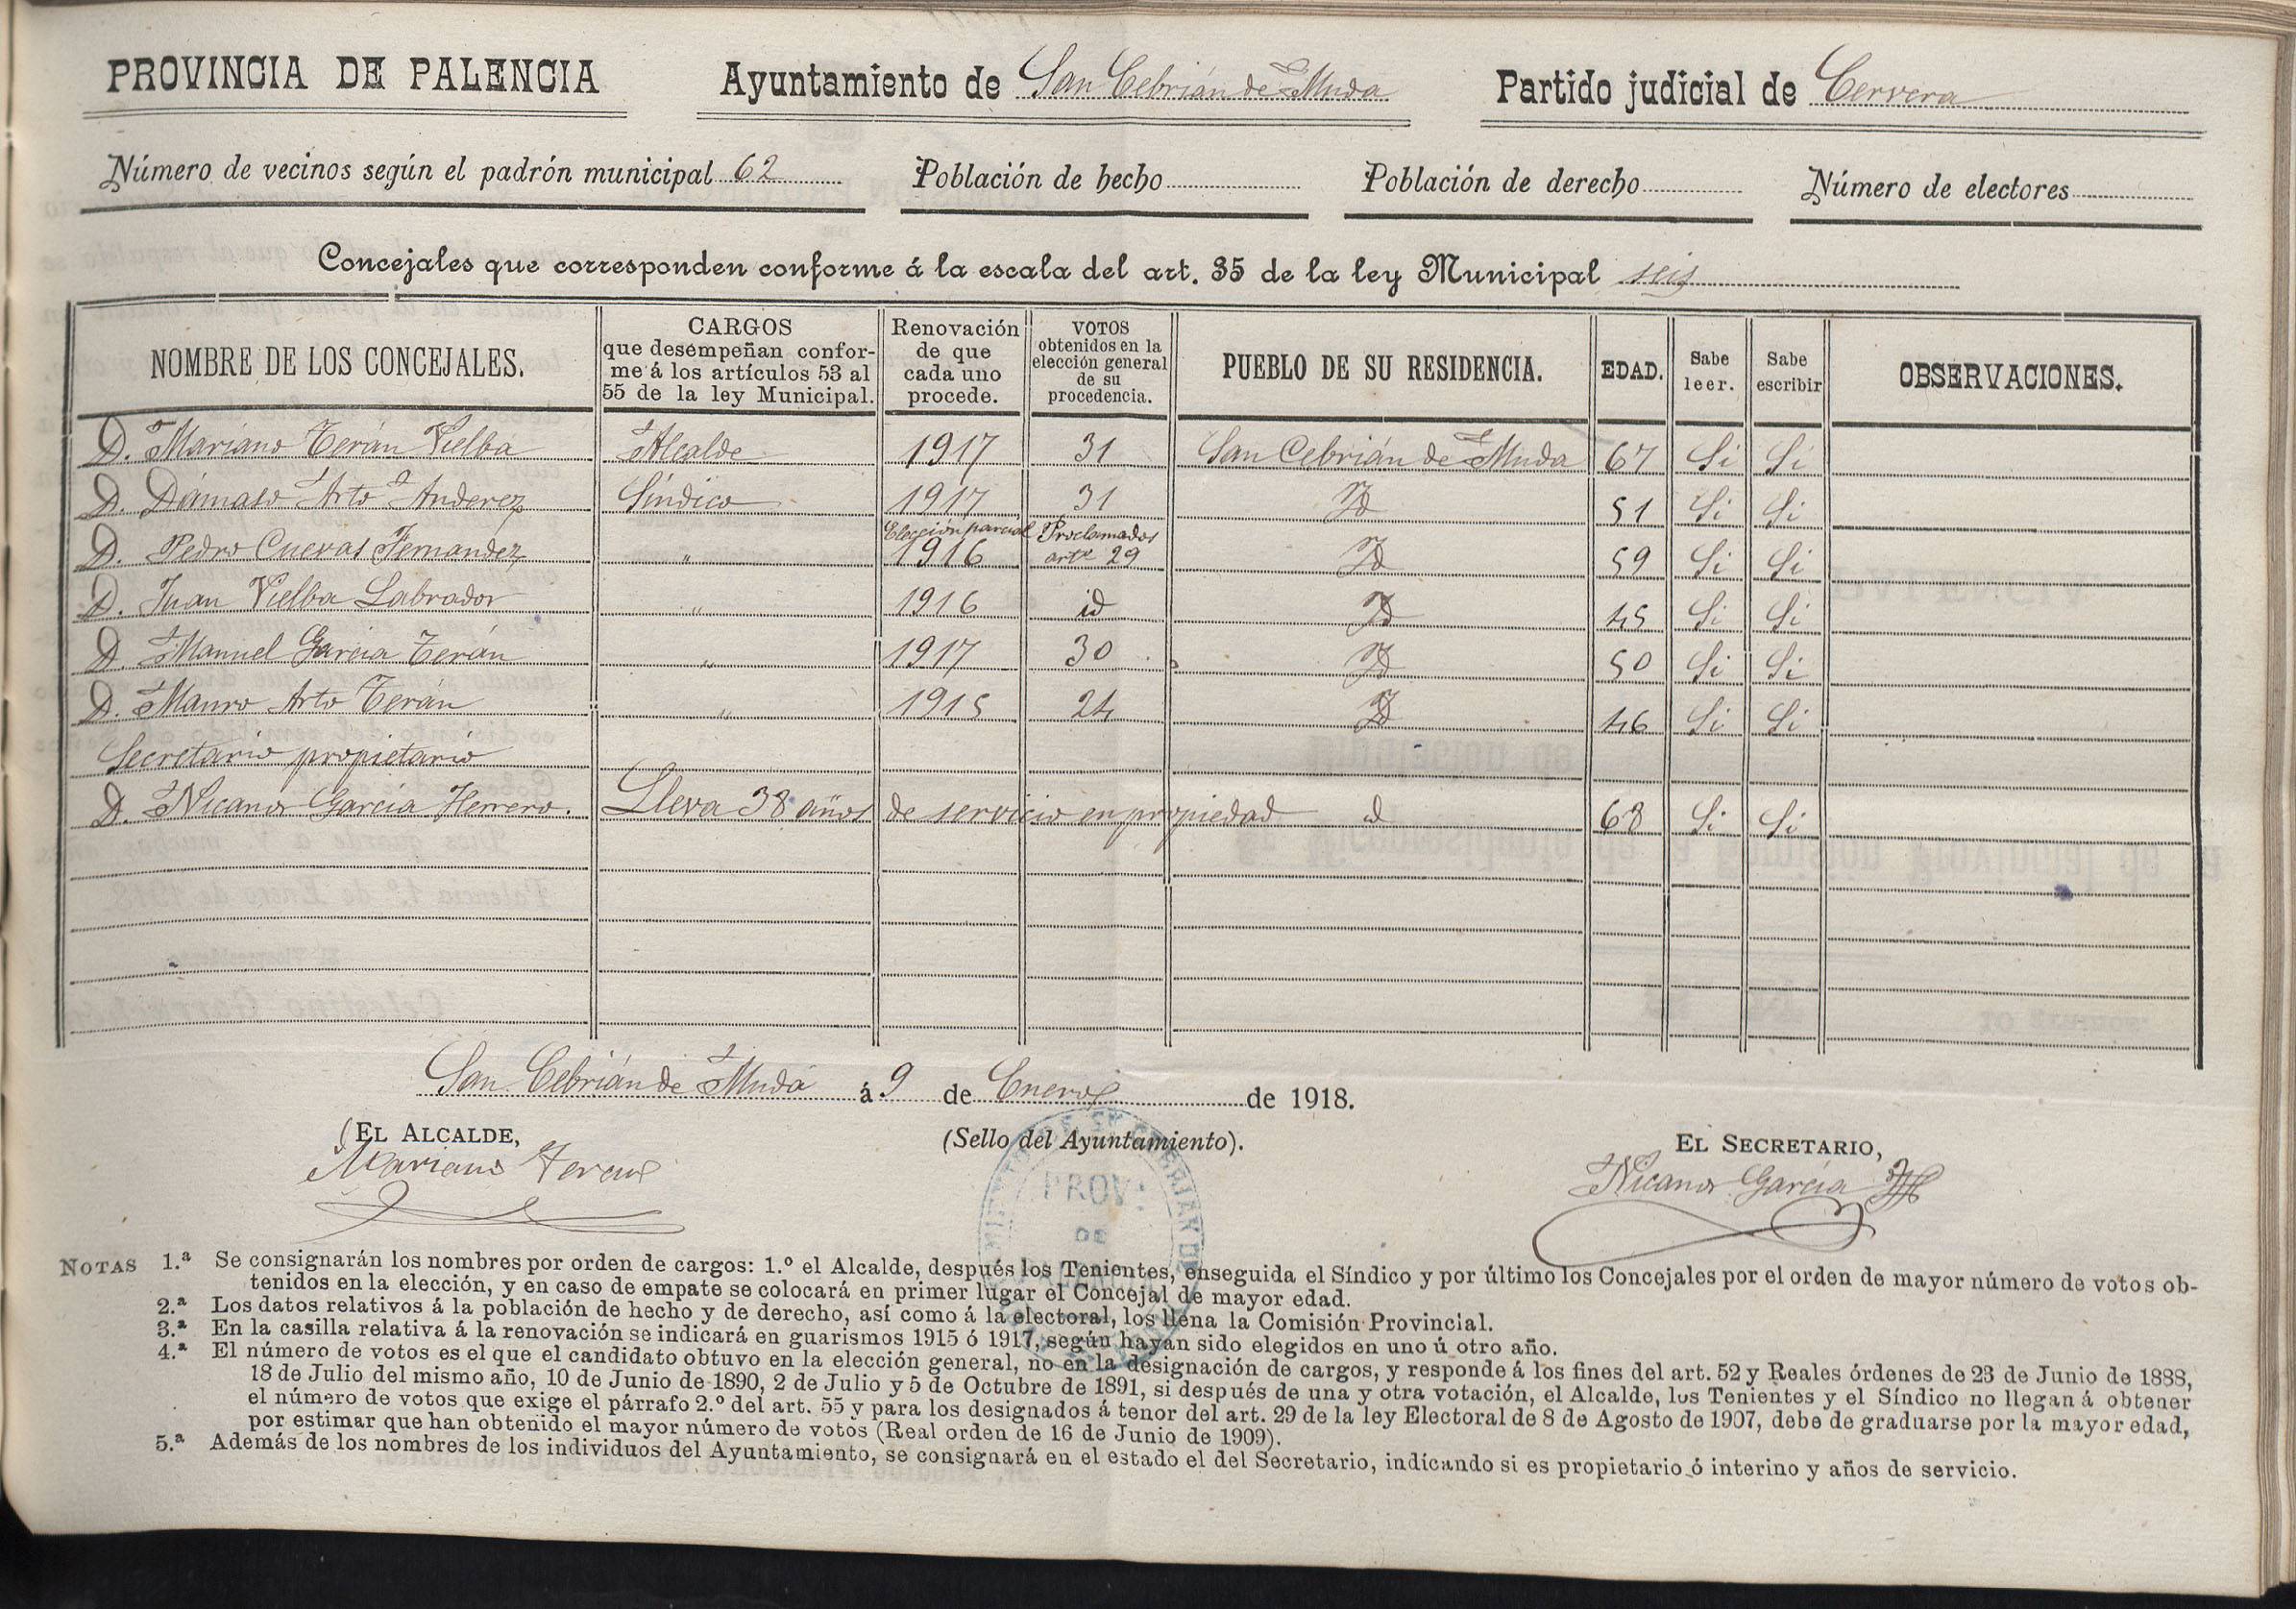 PROVINCIA DE PALENCIA Ayuntamiento de San Cebrián de Muda Partido judicial de Cervera
Número de vecinos según el padrón municipal 62 Población de hecho Población de derecho Número de electores
Concejales que corresponden conforme á la escala del art. 35 de la ley Municipal seis
NOMBRE DE LOS CONCEJALES. CARGOS que desempeñan conforme á los artículos 53 al 55 de la ley Municipal. Renovación de que cada uno procede. VOTOS obtenidos en la elección general de su procedencia. PUEBLO DE SU RESIDENCIA. EDAD. Sabe leer. Sabe escribir OBSERVACIONES.
D. Mariano Terán Vielba Alcalde 1917 31 San Cebrián de Muda 67 Si Si
D. Dámaso Arto Anderez Síndico 1917 31 Id 51 Si Si
D. Pedro Cuevas Fernandez " Elección parcial 1916 Proclamados artº 29 Id 59 Si Si
D. Juan Vielba Labrador " 1916 id Id 45 Si Si
D. Manuel Garcia Terán " 1917 30 Id 50 Si Si
D. Mauro Arto Terán " 1915 24 Id 46 Si Si
Secretario propietario
D. Nicanor García Herrero. Lleva 38 años de servicio en propiedad id 68 Si Si
San Cebrián de Mudá á 9 de Enero de 1918.
EL ALCALDE, (Sello del Ayuntamiento). EL SECRETARIO,
Mariano Teran Nicanor García
PROV.
DE
NOTAS 1.ª Se consignarán los nombres por orden de cargos: 1.º el Alcalde, después los Tenientes, enseguida el Síndico y por último los Concejales por el orden de mayor número de votos ob-
tenidos en la elección, y en caso de empate se colocará en primer lugar el Concejal de mayor edad.
2.ª Los datos relativos á la población de hecho y de derecho, así como á la electoral, los llena la Comisión Provincial.
3.ª En la casilla relativa á la renovación se indicará en guarismos 1915 ó 1917, según hayan sido elegidos en uno ú otro año.
4.ª El número de votos es el que el candidato obtuvo en la elección general, no en la designación de cargos, y responde á los fines del art. 52 y Reales órdenes de 23 de Junio de 1888,
18 de Julio del mismo año, 10 de Junio de 1890, 2 de Julio y 5 de Octubre de 1891, si después de una y otra votación, el Alcalde, los Tenientes y el Síndico no llegan á obtener
el número de votos que exige el párrafo 2.º del art. 55 y para los designados á tenor del art. 29 de la ley Electoral de 8 de Agosto de 1907, debe de graduarse por la mayor edad,
por estimar que han obtenido el mayor número de votos (Real orden de 16 de Junio de 1909).
5.ª Además de los nombres de los individuos del Ayuntamiento, se consignará en el estado el del Secretario, indicando si es propietario ó interino y años de servicio.